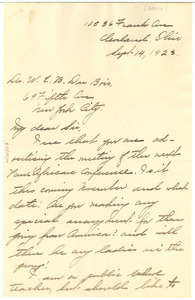 10836 Frank Ave
Cleveland, Ohio
Sept. 19, 1923.
Dr. W. E. B. Du Bois
69 Fifth Ave
New York City.
My dear Sir,
I see that you are ad-
vertising the meeting of the next
Pan African Conference. Is it
this coming November and what
date? Are you making any
special arrangement for those
going from America? and will
there be any ladies in the
party?
I am a public school
teacher, but should like to